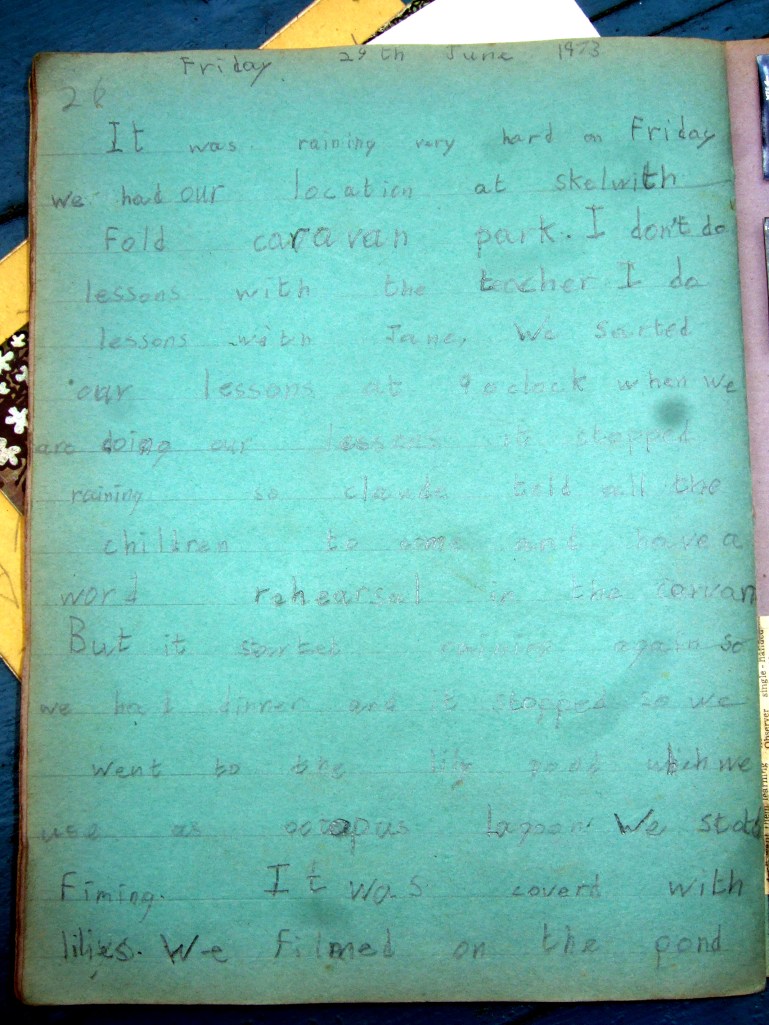 Friday 29th June 1973
26
It was raining very hard on Friday
we had our location at skelwith
Fold caravan park. I don't do
lessons with the teacher I do
lessons with Jane. We sarted
our lessons at 9 o clock when we
are doing our lessons it stopped
raining so claude said all the
children to come and have a
word rehearsal in the carvan
But it started raining again so
we had dinner and it stopped so we
went to the lily pond which we
use as octopus lagoon We
Fiming. It was coverd with
lilies. We filmed on the pond
Observer single-handed